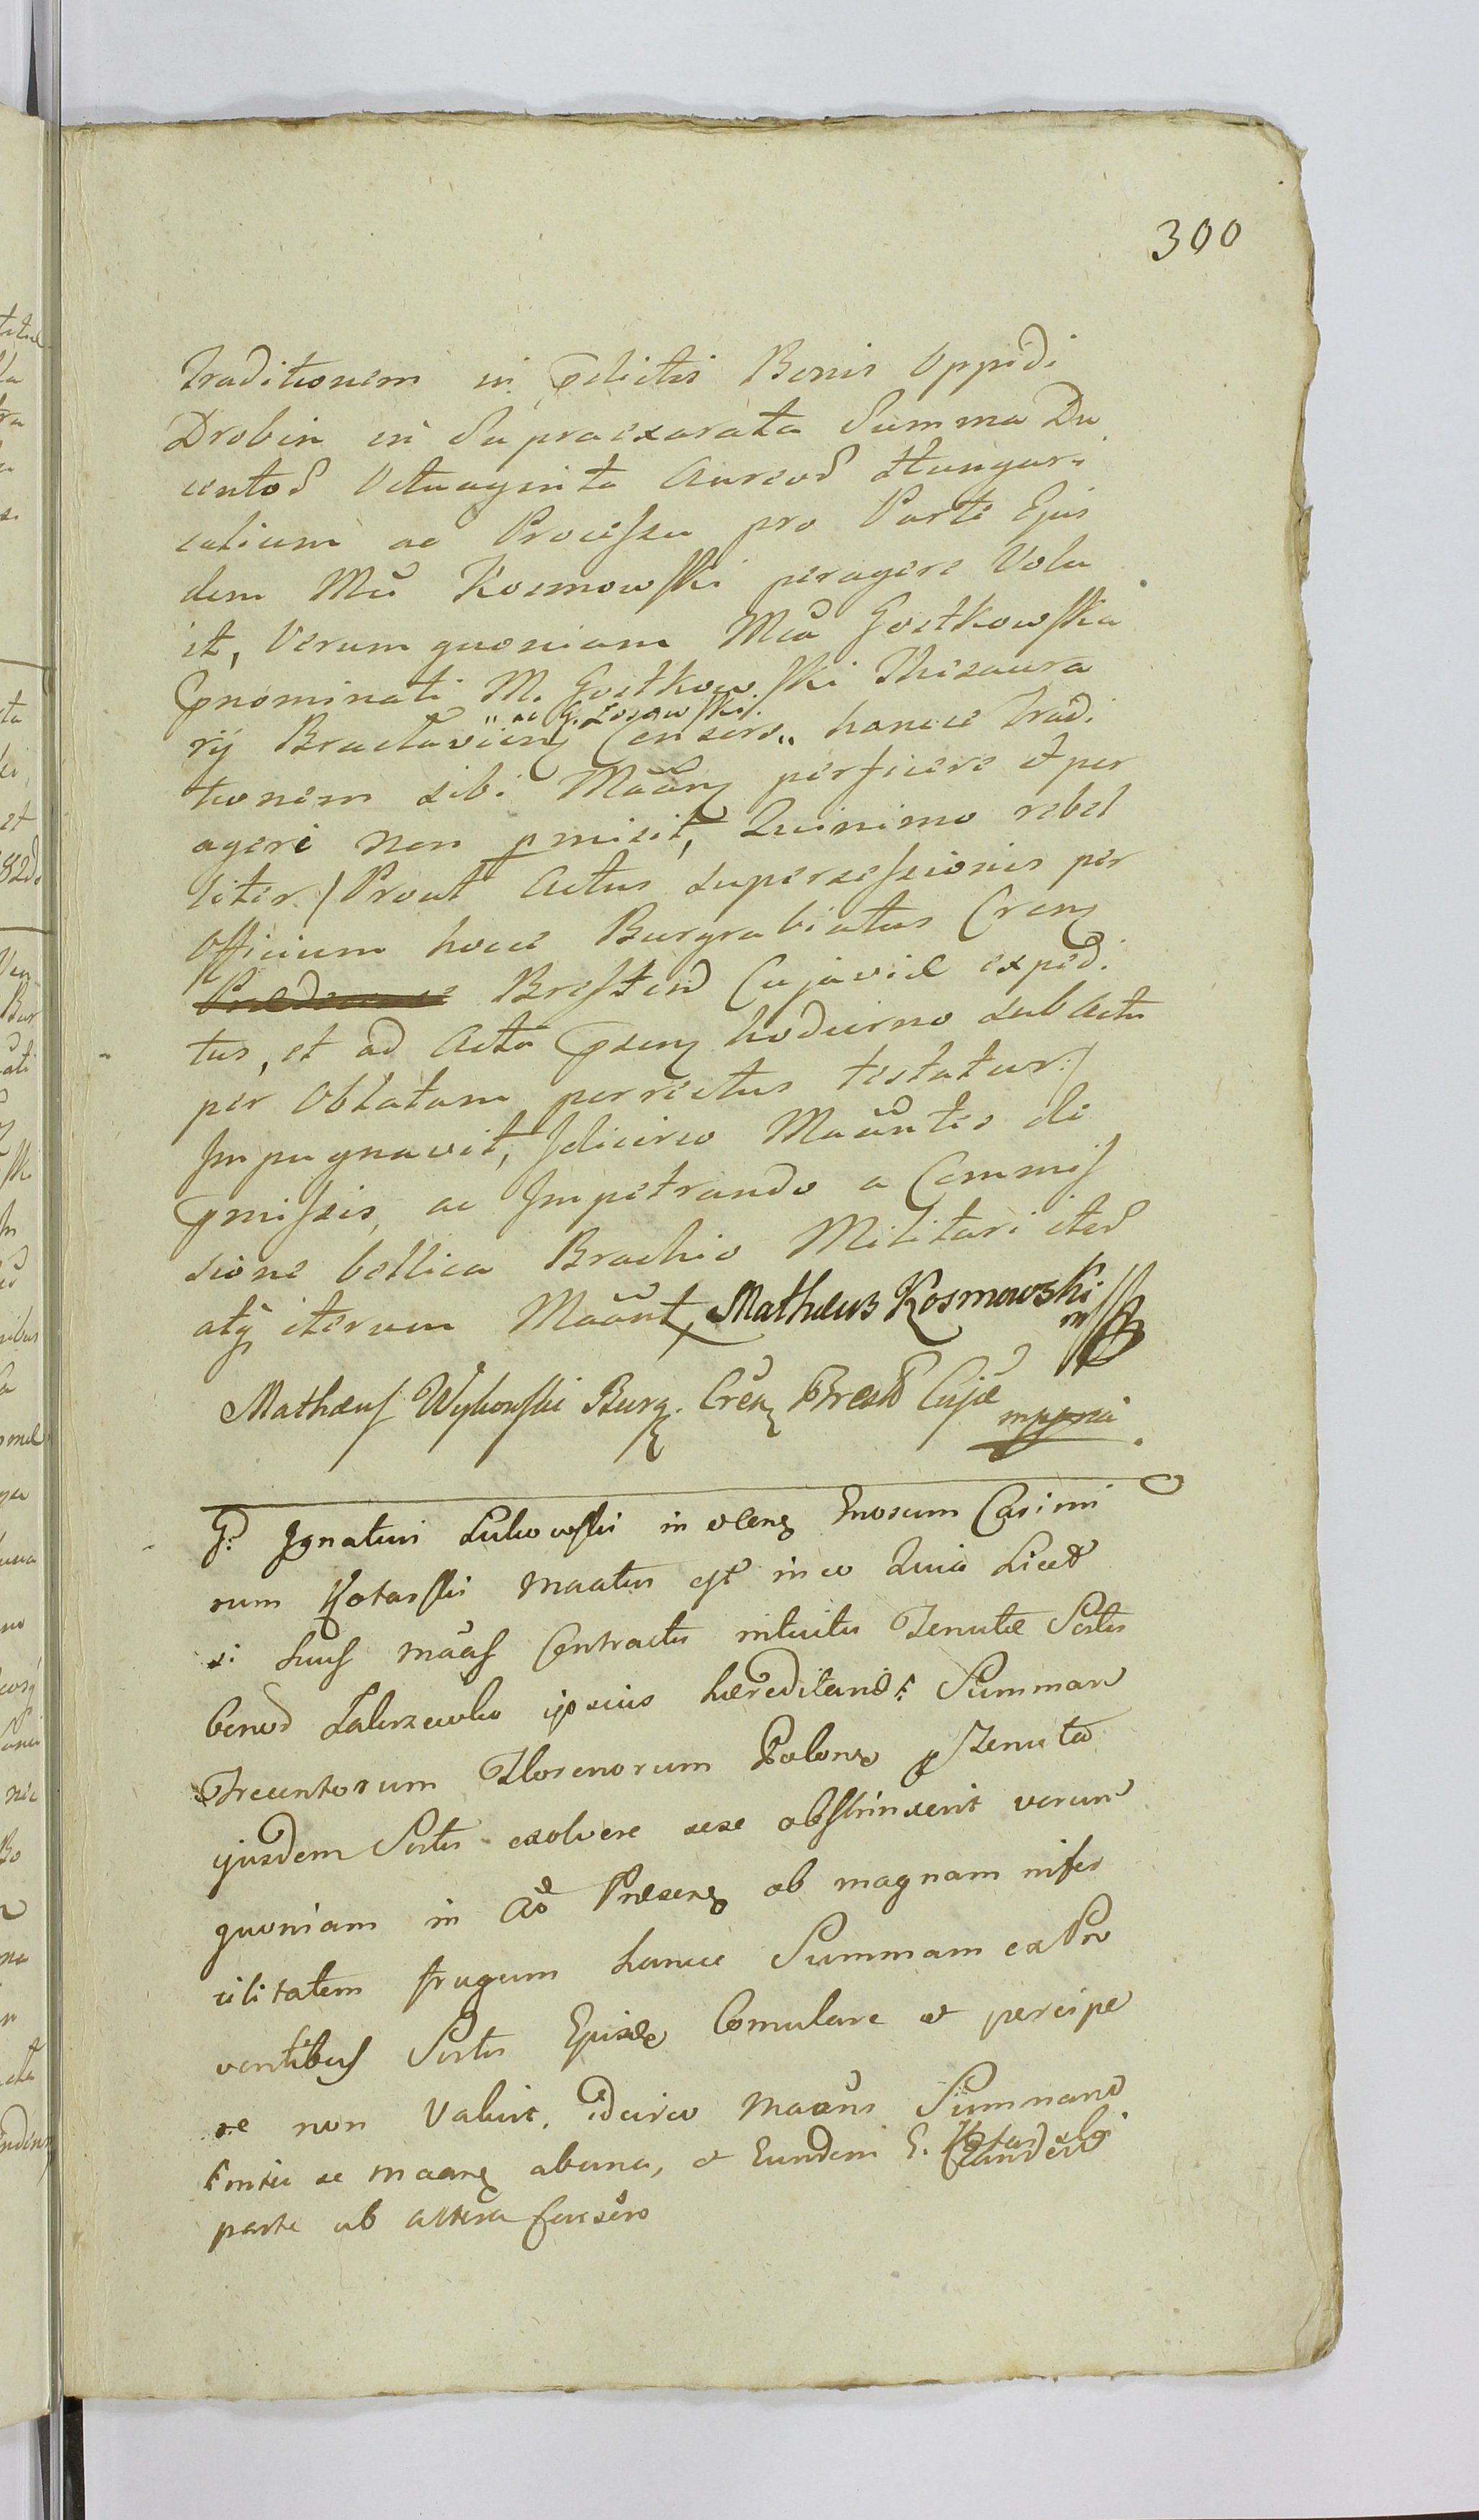 300
Traditionem in pdictis Bonis Oppidi
Drobin in Supraexarata Summa Du
centor Octuaginta Aureor Hungari
calium ac Processu pro Parte Ejus
dem Mci Kosmowski peragere Volu
it, Verum quoniam Mca Gostkowska
pnominati M. Gostkowski Thesaura
" ac G. Zosowski.
rij Braclaviens Consors " hancce Tradi
tionem sibi Maanz perficere et per
agere non pmisit, Quinimo rebel
liter /Prout Actus supersessionis per
Officium hocce Burgrabiatus Crens
Bresten Cujaviæ expedi
tus, et ad Acta psenz hodierno sub Actu
per Oblatam porrectus testatur:/
Impugnavit, Idcirco Maantes de
pmissis, ac Impetrando a Commis
sione bellica Brachio Militari iter
atq iterum Maant, Mathæus Kosmowski
mpp
Mathæus Wykowski Burg. Cren Brest Cujæ
mppria
G. Ignatius Lukowski in vlenz Gnosum Casimi
rum Kotarski maatus est in eo Quia Licet
si huj maas Contractus intuitu Tenutæ Sortis
bonor Zakrzewko ipsius hæreditarie: Summam
Trecentorum Florenorum Polonz p Tenuta
ejusdem Sortis exolvere sese obstrinxerit verum
quoniam in Ao Præsenz ob magnam infer
tilitatem frugum hancce Summam ex Pro
ventibus Sortis Ejusdz Comulare et percipe
re non Valuit, idcirco maans Summam
se maanz abuna, et Eundem G. Kotarski
parte ab altera